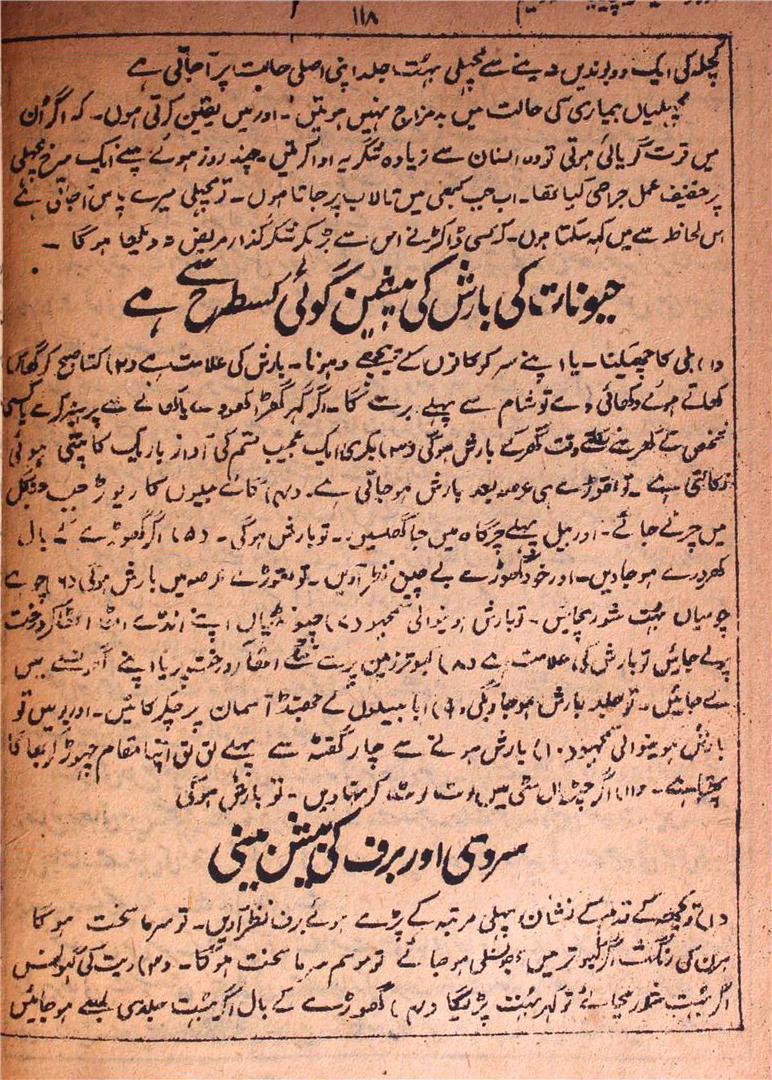 ۱۱۸
کچلہ کی ایک دو بوندیں دینے سے مچھلی بہت جلد اپنی اصلی حالت پر آجاتی ہے
مچھلیاں بیماری کی حالت میں بدمزاج نہیں ہوتیں۔ اور میں یقین کرتی ہوں۔ کہ اگر ان
میں قوت گویائی ہوتی تو وہ انسان سے زیادہ شکریہ ادا کرتیں۔ چند روز ہوئے مینے ایک سرخ مچھلی
پر خفیف عمل جراحی کیا تھا۔ اب جب کبھی میں تالاب پر جاتا ہوں۔ تو مچھلی میرے پاس آجاتی ہے
اس لحاظ سے میں کہہ سکتا ہوں۔ کہ کسی ڈاکٹر نے اس سے بڑھکر شکر گذار مریض نہ دیکھا ہوگا۔
حیوانات کی بارش کی پیشین گوئی کسطرح سے ہے
(۱) بلی کا چھینکنا۔ یا اپنے سر کو کانوں کے پیچھے دھونا۔ بارش کی علامت ہے (۲) کتا صبح کو گھاس
کھاتے ہوئے دکھائی دے تو شام سے پہلے برسے گا۔ اگر گہر گھڑا کھودے یا کھانے سے پرہیز کرے یا کسی
شخص کے گھر سے وقت گھر کے بارش ہوگی (۳) بکری ایک عجیب قسم کی آواز باریک کانپتی ہوئی
نکالتی ہے۔ تو تھوڑے ہی عرصہ بعد بارش ہو جاتی ہے۔ (۴) گائے بیلوں کا ریوڑ جب جنگل
میں چرنے جائے۔ اور بیل پہلے چرگاہ میں جا گھسیں۔ تو بارش ہوگی۔ (۵) اگر گھوڑے کے بال
کھردرے ہو جاویں۔ اور خود گھوڑے بے چین نظر آویں۔ تو تھوڑے عرصہ میں بارش ہوگی (۶) چوہے
چوہیاں بہت شور مچائیں۔ تو بارش ہونیوالی سمجھو (۷) چیونٹیاں اپنے انڈے اٹھا اٹھا کر درخت
پر لے جائیں تو بارش کی علامت ہے (۸) کبوتر زمین پر سے اٹھکر درخت پر یا اپنے گھونسلے میں
لے جائیں۔ تو جلد بارش ہو جاویگی (۹) ابابیلوں کے جھنڈ آسمان پر چکر کاٹیں۔ اور بولیں تو
بارش ہونیوالی سمجھو (۱۰) بارش ہونے سے چار گھنٹہ سے پہلے لق لق اپنا مقام چھوڑ کر بھاگا
پھرتا ہے۔ (۱۱) اگر چڑیاں مٹی میں لوٹ لوٹ کر نہاویں۔ تو بارش ہوگی
سردی اور برف کی پیشن بینی
(۱) ریچھ کے قدم کے نشان پہلی مرتبہ کے پڑے ہوئے برف نظر آویں۔ تو سرما سخت ہوگا
ہرن کی رنگت اگر اکتوبر میں نیلی ہو جائے تو موسم سرما سخت ہوگا۔ (۳) ریت کی
اگر بہت شور مچائے تو کہر بہت پڑیگا (۴) گھوڑے کے بال اگر بہت جلدی لمبے ہو جائیں